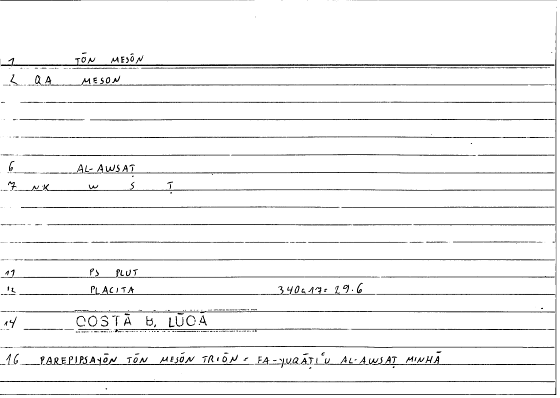 1 TŌN MESŌN
2 QA MESON
6 AL-AWSAṬ
7 NK W S Ṭ
11 PS PLUT
12 PLACITA 340a17 = 29.6
14 QOSṬĀ B. LŪQĀ
16 PAREPIPSAYŌN TŌN MESŌN TRIŌN = FA-YURĀṬĪ'U AL-AWSAṬ MINHĀ